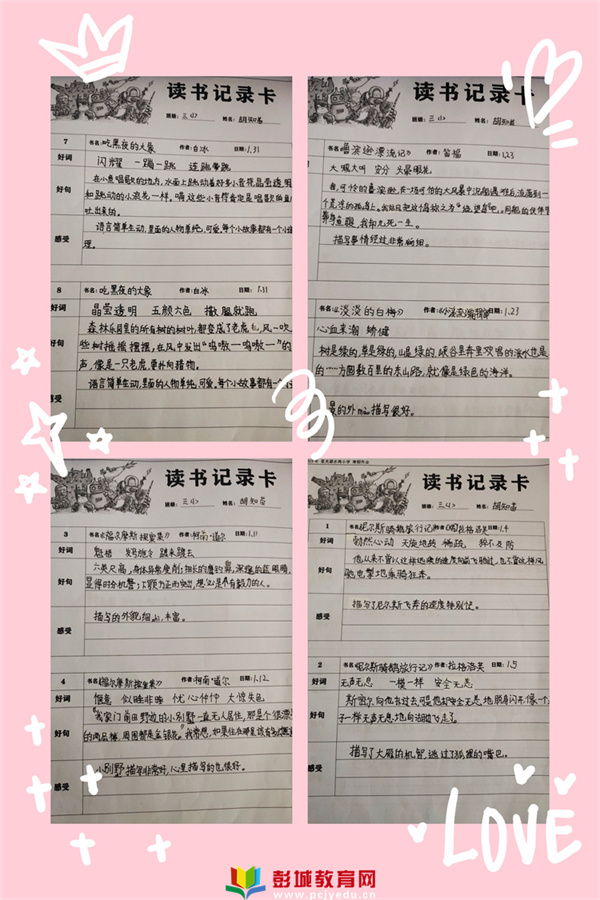 读书记录卡
班级：三(1) 姓名：胡知
7 书名：吃黑夜的大象 作者：白冰 日期：1.31
好词 闪耀 一蹦一跳 连跳带跑
好句 在小鱼唱歌的地方，水面上跳动着好多小音花，晶莹透明
和跳动的小浪花一样。
吐出来的。
感受 语言简单生动，里面的人物单纯，可爱，每个小故事都有一个小道
理。
8 书名：吃黑夜的大象 作者：白冰 日期：1.31
好词 晶莹透明 五颜六色 撒腿就跑
好句 森林乐园里的所有树的树叶，都变成了老虎
些树摇摇摆摆，在风中发出“呜嗷—呜嗷—”的
声，像是一只老虎，更朴向猎物。
感受 语言简单生动，里面的人物单纯，可爱，每个小故事都有一
读书记录卡
班级：三(1) 姓名：胡知
书名：《鲁滨逊漂流记》 作者：笛福 日期：1.23
大喊大叫 安分 头晕眼花
个荒凉的孤岛上，我姑且把这个岛称之为
身鱼腹，我却九死一生。
描写事情经过非常细。
书名：《淡淡的白梅》 日期：1.23
心血来潮 矫健
树是绿的，草是绿的，山是绿的，峡谷里奔里欢唱的溪水也是
的……方圆数百里的东山路，就像是绿色的海洋。
描写很好。
读书记录卡
班级：三(1) 姓名：胡知
3 书名：《福尔摩斯探案集》 作者：柯南·道尔 日期：1.11
好词 魁梧
好句 六英尺高，身体异常瘦削，细长的鹰钩鼻，深邃的蓝眼睛，
显得十分机警；下颚方正而突出，想必是个有毅力的人。
感受 描写的外貌细，丰富。
4 书名：《福尔摩斯探案集》 作者：柯南·道尔 日期：1.12
好词 惬意 似睡非睡 忧心忡忡 大惊失色
好句 “我家门前田野边的小别野一直无人居住，那是个很漂
的两层楼，周围都是金银花。我常想，如果住在那里该有多
感受 小别野描写非常好，心里描写的也很好。
读书记录卡
班级：三(1) 姓名：胡知
1 书名：《尼尔斯骑鹅旅行记》 日期：1.4
好词 勃然心动 天旋地转 畅疏 猝不及防
好句 他从来不曾以这样迅疾的速度向前飞驰过，也不曾这样风
驰电掣地乘骑狂奔。
感受 描写了尼尔斯飞奔的速度特别快。
2 书名：《尼尔斯骑鹅旅行记》 作者：拉格洛芙 日期：1.5
好词 无声无息 一模一样 安全无恙
好句 斯密尔向他书过去，可是他却安全无恙地脱身闪开，像一个
子一样无声无息地向湖边飞走了。
感受 描写了大雁的机智，逃过了狐狸的嘴巴。
LOVE
彭城教育网
www.pcjyedu.cn